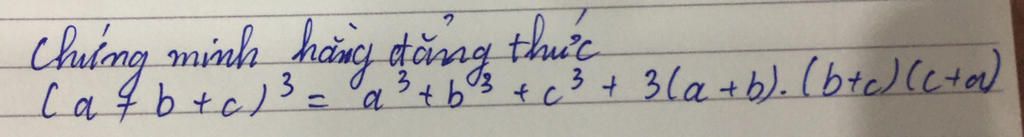 Chứng minh hằng đẳng thức
(a + b + c)³ = a³ + b³ + c³ + 3(a + b). (b + c) (c + a)